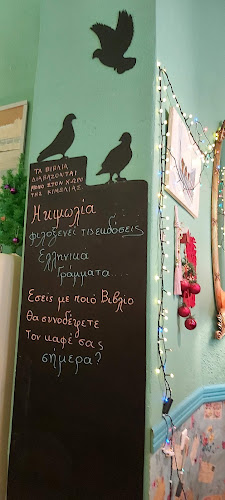 ΤΑ ΒΙΒΛΙΑ
ΔΙΑΒΑΖΟΝΤΑΙ
ΜΟΝΟ ΣΤΟΝ ΧΩΡΟ
ΤΗΣ ΚΙΜΩΛΙΑΣ.
Η κιμωλία
φιλοξενεί τις εκδόσεις
Ελληνικά
Γράμματα....
Εσείς με ποιό Βιβλίο
θα συνοδέψετε
Τον καφέ σας
σήμερα?